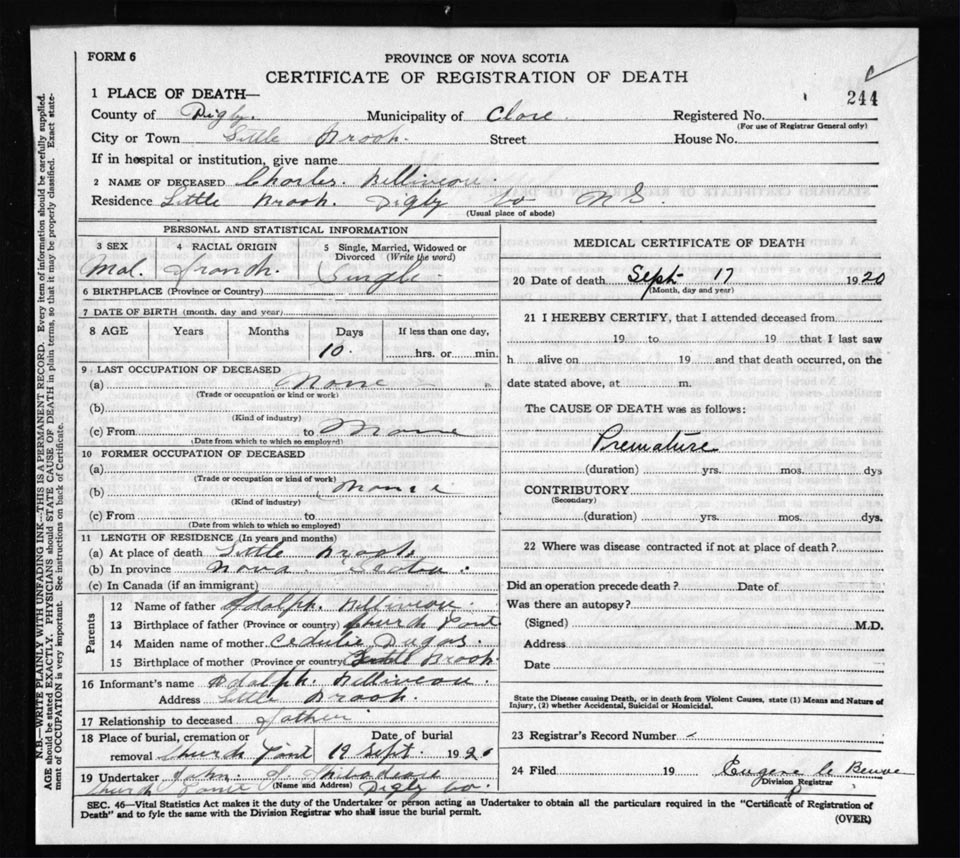 FORM 6
PROVINCE OF NOVA SCOTIA
CERTIFICATE OF REGISTRATION OF DEATH
244
1 PLACE OF DEATH—
County of Digby. Municipality of Clare. Registered No.
(For use of Registrar General only)
City or Town Little Brook. Street House No.
If in hospital or institution, give name
2 NAME OF DECEASED Charles. Belliveau.
Residence Little Brook. Digby Co N S.
(Usual place of abode)
PERSONAL AND STATISTICAL INFORMATION
3 SEX 4 RACIAL ORIGIN 5 Single, Married, Widowed or Divorced (Write the word)
Mal. French. Single
6 BIRTHPLACE (Province or Country)
7 DATE OF BIRTH (month, day and year)
8 AGE Years Months Days If less than one day,
10. hrs. or min.
9 LAST OCCUPATION OF DECEASED
(a) None
(Trade or occupation or kind of work)
(b)
(Kind of industry)
(c) From to None
(Date from which to which so employed)
10 FORMER OCCUPATION OF DECEASED
(a)
(Trade or occupation or kind of work)
(b) None
(Kind of industry)
(c) From to
(Date from which to which so employed)
11 LENGTH OF RESIDENCE (In years and months)
(a) At place of death Little Brook
(b) In province Nova Scotia.
(c) In Canada (if an immigrant)
Parents
12 Name of father Adolph. Belliveau.
13 Birthplace of father (Province or country) Church Point
14 Maiden name of mother Cedulie Dugas.
15 Birthplace of mother (Province or country) Little Brook.
16 Informant's name Adolph. Belliveau.
Address Little Brook.
17 Relationship to deceased father
18 Place of burial, cremation or removal Date of burial
Church Point 19 Sept. 1920
19 Undertaker John. Thibodeau
(Name and Address)
Church Point Digby Co.
MEDICAL CERTIFICATE OF DEATH
20 Date of death Sept 17 1920
(Month, day and year)
21 I HEREBY CERTIFY, that I attended deceased from
19 to 19 that I last saw
h alive on 19 and that death occurred, on the
date stated above, at m.
The CAUSE OF DEATH was as follows:
Premature
(duration) yrs. mos. dys
CONTRIBUTORY
(Secondary)
(duration) yrs. mos. dys.
22 Where was disease contracted if not at place of death?
Did an operation precede death? Date of
Was there an autopsy?
(Signed) M.D.
Address
Date
State the Disease causing Death, or in death from Violent Causes, state (1) Means and Nature of
Injury, (2) whether Accidental, Suicidal or Homicidal.
23 Registrar's Record Number
24 Filed 19 Eugene
Division Registrar
SEC. 46—Vital Statistics Act makes it the duty of the Undertaker or person acting as Undertaker to obtain all the particulars required in the "Certificate of Registration of
Death" and to fyle the same with the Division Registrar who shall issue the burial permit.
(OVER)
N.B.—WRITE PLAINLY WITH UNFADING INK—THIS IS A PERMANENT RECORD. Every item of information should be carefully supplied.
AGE should be stated EXACTLY. PHYSICIANS should STATE CAUSE OF DEATH in plain terms, so that it may be properly classified. Exact state-
ment of OCCUPATION is very important. See instructions on back of Certificate.